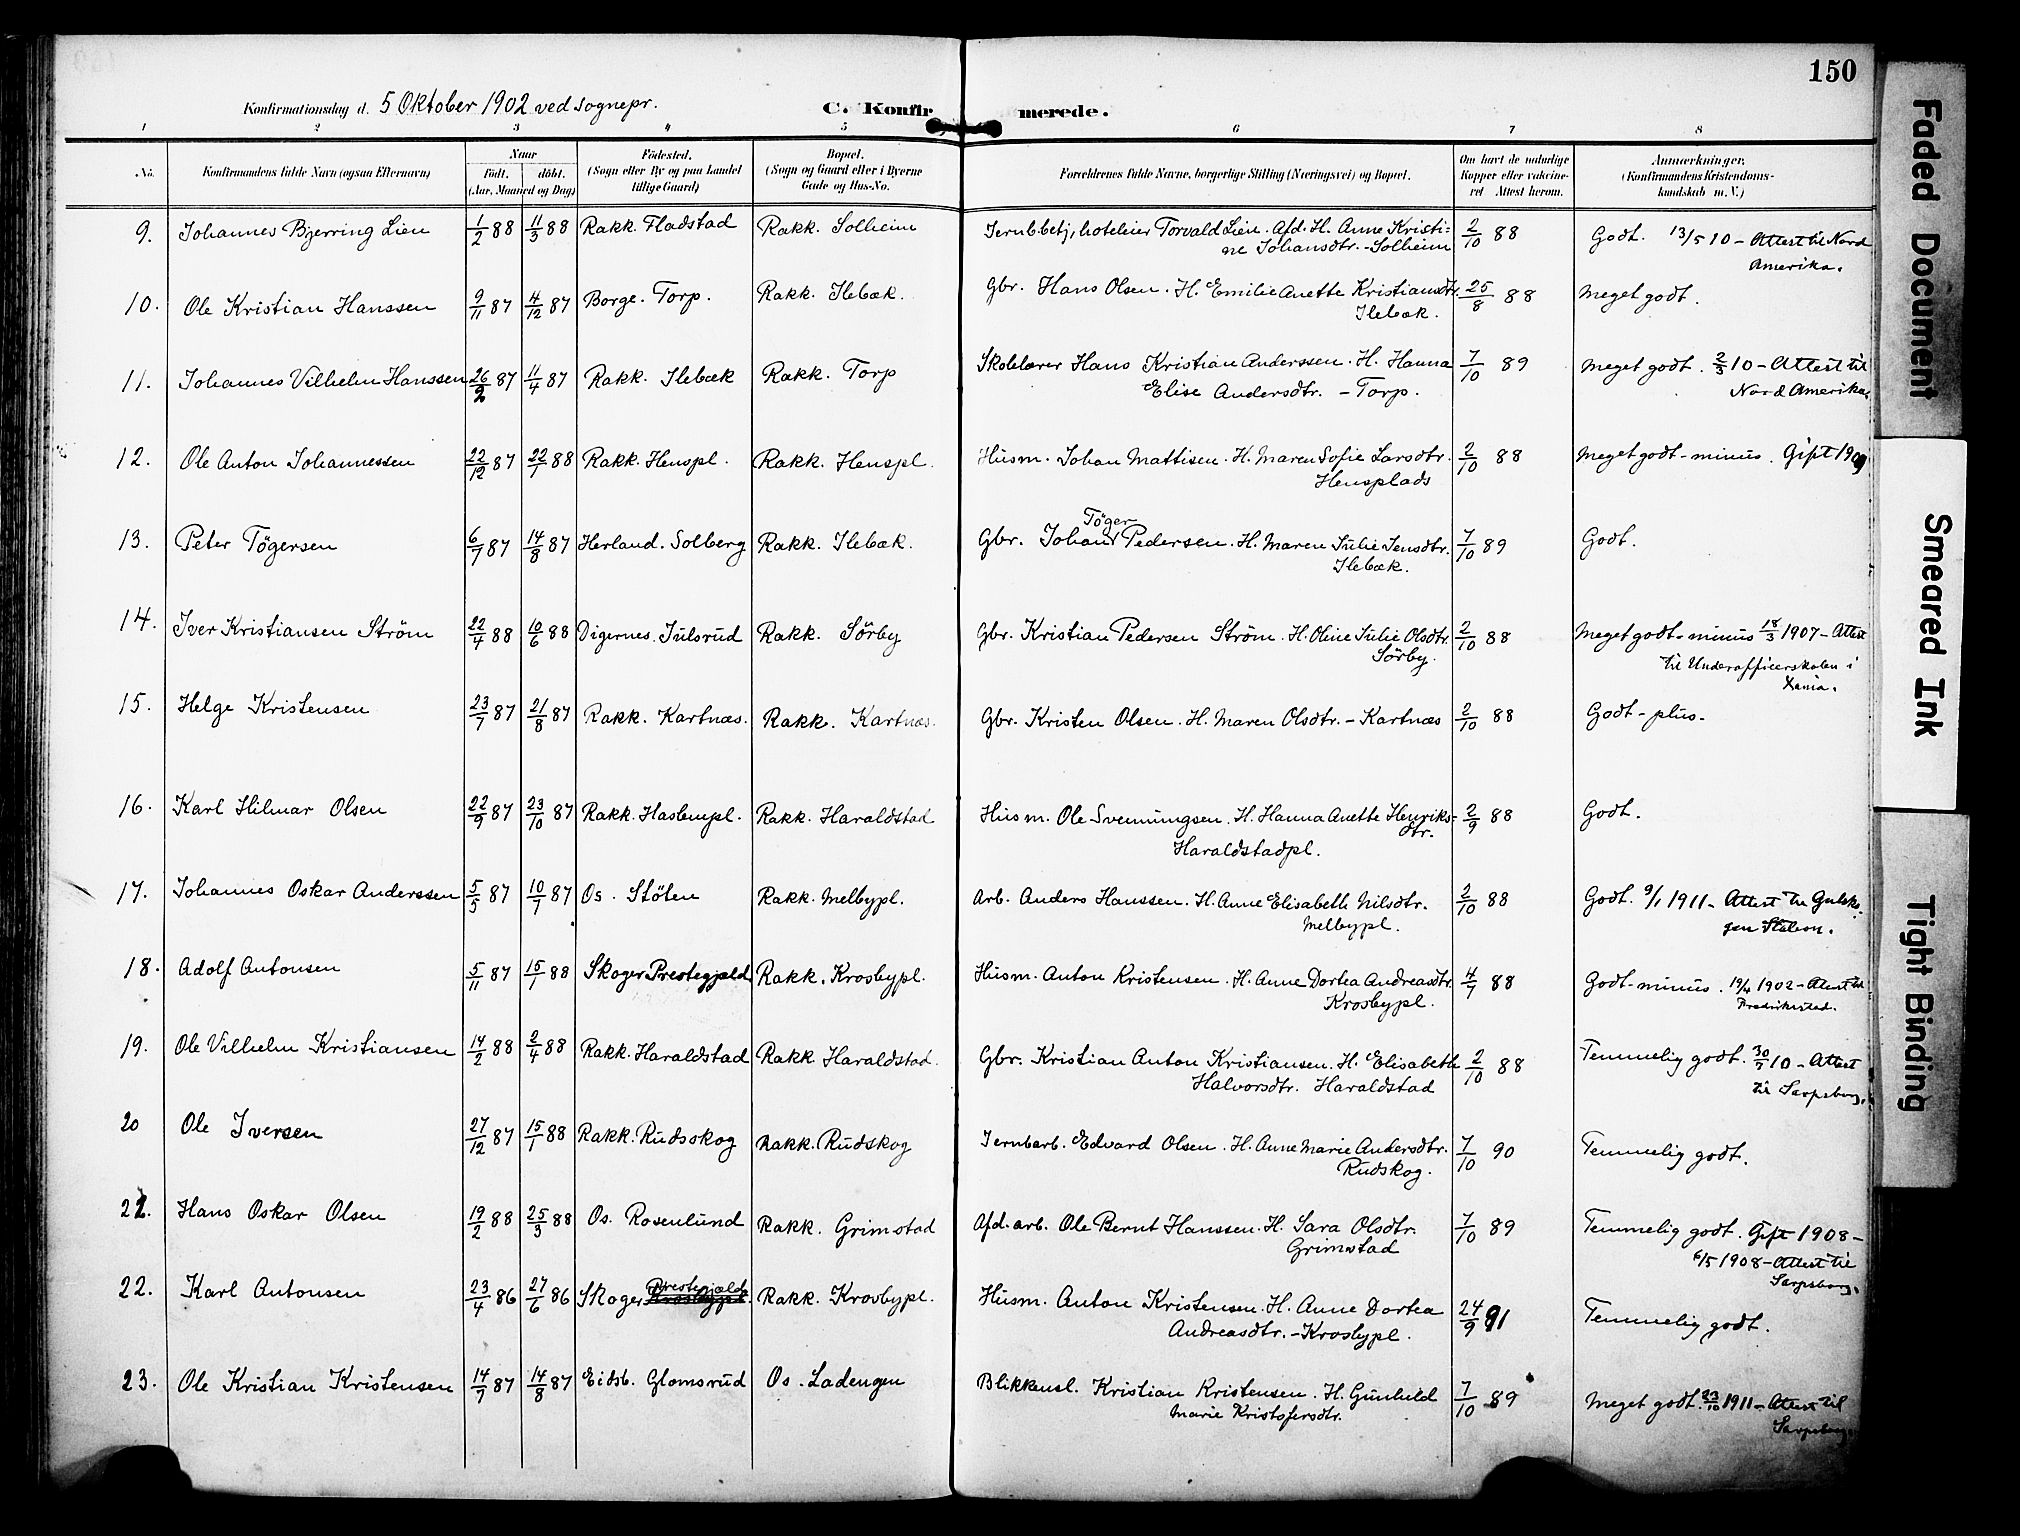 150
Konfirmationsdag d. 5 Oktober 1902 ved sognepr.
C. Konfir merede.
1 2 3 4 5 6 7 8
No. Konfirmandens fulde Navn (ogsaa Efternavn) Naar Födt. döbt. (Aar, Maaned og Dag) Födested. (Sogn eller By og paa Landet tillige Gaard) Bopæl. (Sogn og Gaard eller i Byerne Gade og Hus-No. Forældrenes fulde Navne, borgerlige Stilling (Næringsvei) og Bopæl. Om havt de naturlige Kopper eller vaccineret Attest herom. Anmærkninger. (Konfirmandens Kristendomskundskab m. V.)
9. Johannes Bjerring Lien 1/2 88 11/3 88 Rakk. Fladstad Rakk. Solheim Jernbbetj, hoteleier Torvald Lien. Afd. H. Anne Kristi= 2/10 88 Godt. 13/5 10 - Attest til Nord
ne Johansdtr. - Solheim Amerika.
10. Ole Kristian Hanssen 9/11 87 4/12 87 Borge. Torp. Rakk. Ilebæk. Gbr. Hans Olsen. H. Emilie Anette Kristiansdtr. 25/8 88 Meget godt.
Ilebæk.
11. Johannes Vilhelm Hanssen 26/2 87 11/4 87 Rakk. Ilebæk Rakk. Torp Skolelærer Hans Kristian Anderssen. H. Hanna 7/10 89 Meget godt. 2/3 10 - Attest til
Elise Andersdtr. - Torp. Nord Amerika.
12. Ole Anton Johannessen 22/12 87 22/1 88 Rakk. Henspl. Rakk. Henspl. Husm. Johan Mattisen. H. Maren Sofie Larsdtr. 2/10 88 Meget godt - minus. Gift 1909
Hensplads
13. Peter Tögersen 6/7 87 14/8 87 Herland. Solberg Rakk. Ilebæk. Gbr. Johan Töger Pedersen. H. Maren Julie Jensdtr. 7/10 89 Godt.
Ilebæk.
14. Iver Kristiansen Ström 22/4 88 10/6 88 Digernes. Julsrud Rakk. Sörby Gbr. Kristian Pedersen Ström. H. Oline Julie Olsdtr. 2/10 88 Meget godt - minus 18/3 1907 - Attest
Sörby. til Underofficerskolen i
Xania.
15. Helge Kristensen 23/7 87 21/8 87 Rakk. Kartnæs. Rakk. Kartnæs. Gbr. Kristen Olsen. H. Maren Olsdtr. - Kartnæs 2/10 88 Godt - plus.
16. Karl Hilmar Olsen 22/9 87 23/10 87 Rakk. Haslempl. Rakk. Haraldstad Husm. Ole Svenningsen. H. Hanna Anette Henriks- 2/9 88 Godt.
dtr.
Haraldstadpl.
17. Johannes Oskar Anderssen 5/5 87 10/7 87 Os. Stöten Rakk. Melbypl. Arb. Anders Hanssen. H. Anne Elisabeth Nilsdtr. 2/10 88 Godt. 9/1 1911 - Attest til Gulsko-
Melbypl. gen Station.
18. Adolf Antonsen 5/11 87 15/1 88 Skoger Prestegjeld Rakk. Krosbypl. Husm. Anton Kristensen. H. Anne Dortea Andreasdtr. 4/7 88 Godt - minus. 1902 - Attest til
Krosbypl. Fredrikstad.
19. Ole Vilhelm Kristiansen 14/2 88 2/4 88 Rakk. Haraldstad Rakk Haraldstad. Gbr. Kristian Anton Kristiansen. H. Elisabeth 2/10 88 Temmelig godt. 10 - Attest
Halvorsdtr. Haraldstad til Sarpsborg.
20 Ole Iversen 27/12 87 15/1 88 Rakk. Rudsskog Rakk. Rudskog Jernbarb. Edvard Olsen. H. Anne Marie Andersdtr. 7/10 90 Temmelig godt.
Rudskog.
21. Hans Oskar Olsen 19/2 88 25/3 88 Os. Rosenlund Rakk. Grimstad Afd. arb. Ole Bernt Hanssen. H. Sara Olsdtr. 7/10 89 Temmelig godt. Gift 1908 -
Grimstad 6/5 1908 - Attest til
Sarpsborg.
22. Karl Antonsen 23/4 86 27/6 86 Skoger Prestegjeld Rakk. Krosbypl. Husm. Anton Kristensen. H. Anne Dortea 24/9 91 Temmelig godt.
Andreasdtr. - Krosbypl.
23. Ole Kristian Kristensen 14/7 87 14/8 87 Eidsb. Glomsrud Os. Ladengen Blikkensl. Kristian Kristensen. H. Gunhild 7/10 89 Meget godt. 23/10 1911 - Attest til
Marie Kristofersdtr. Sarpsborg.
Faded Document
Smeared Ink
Tight Binding